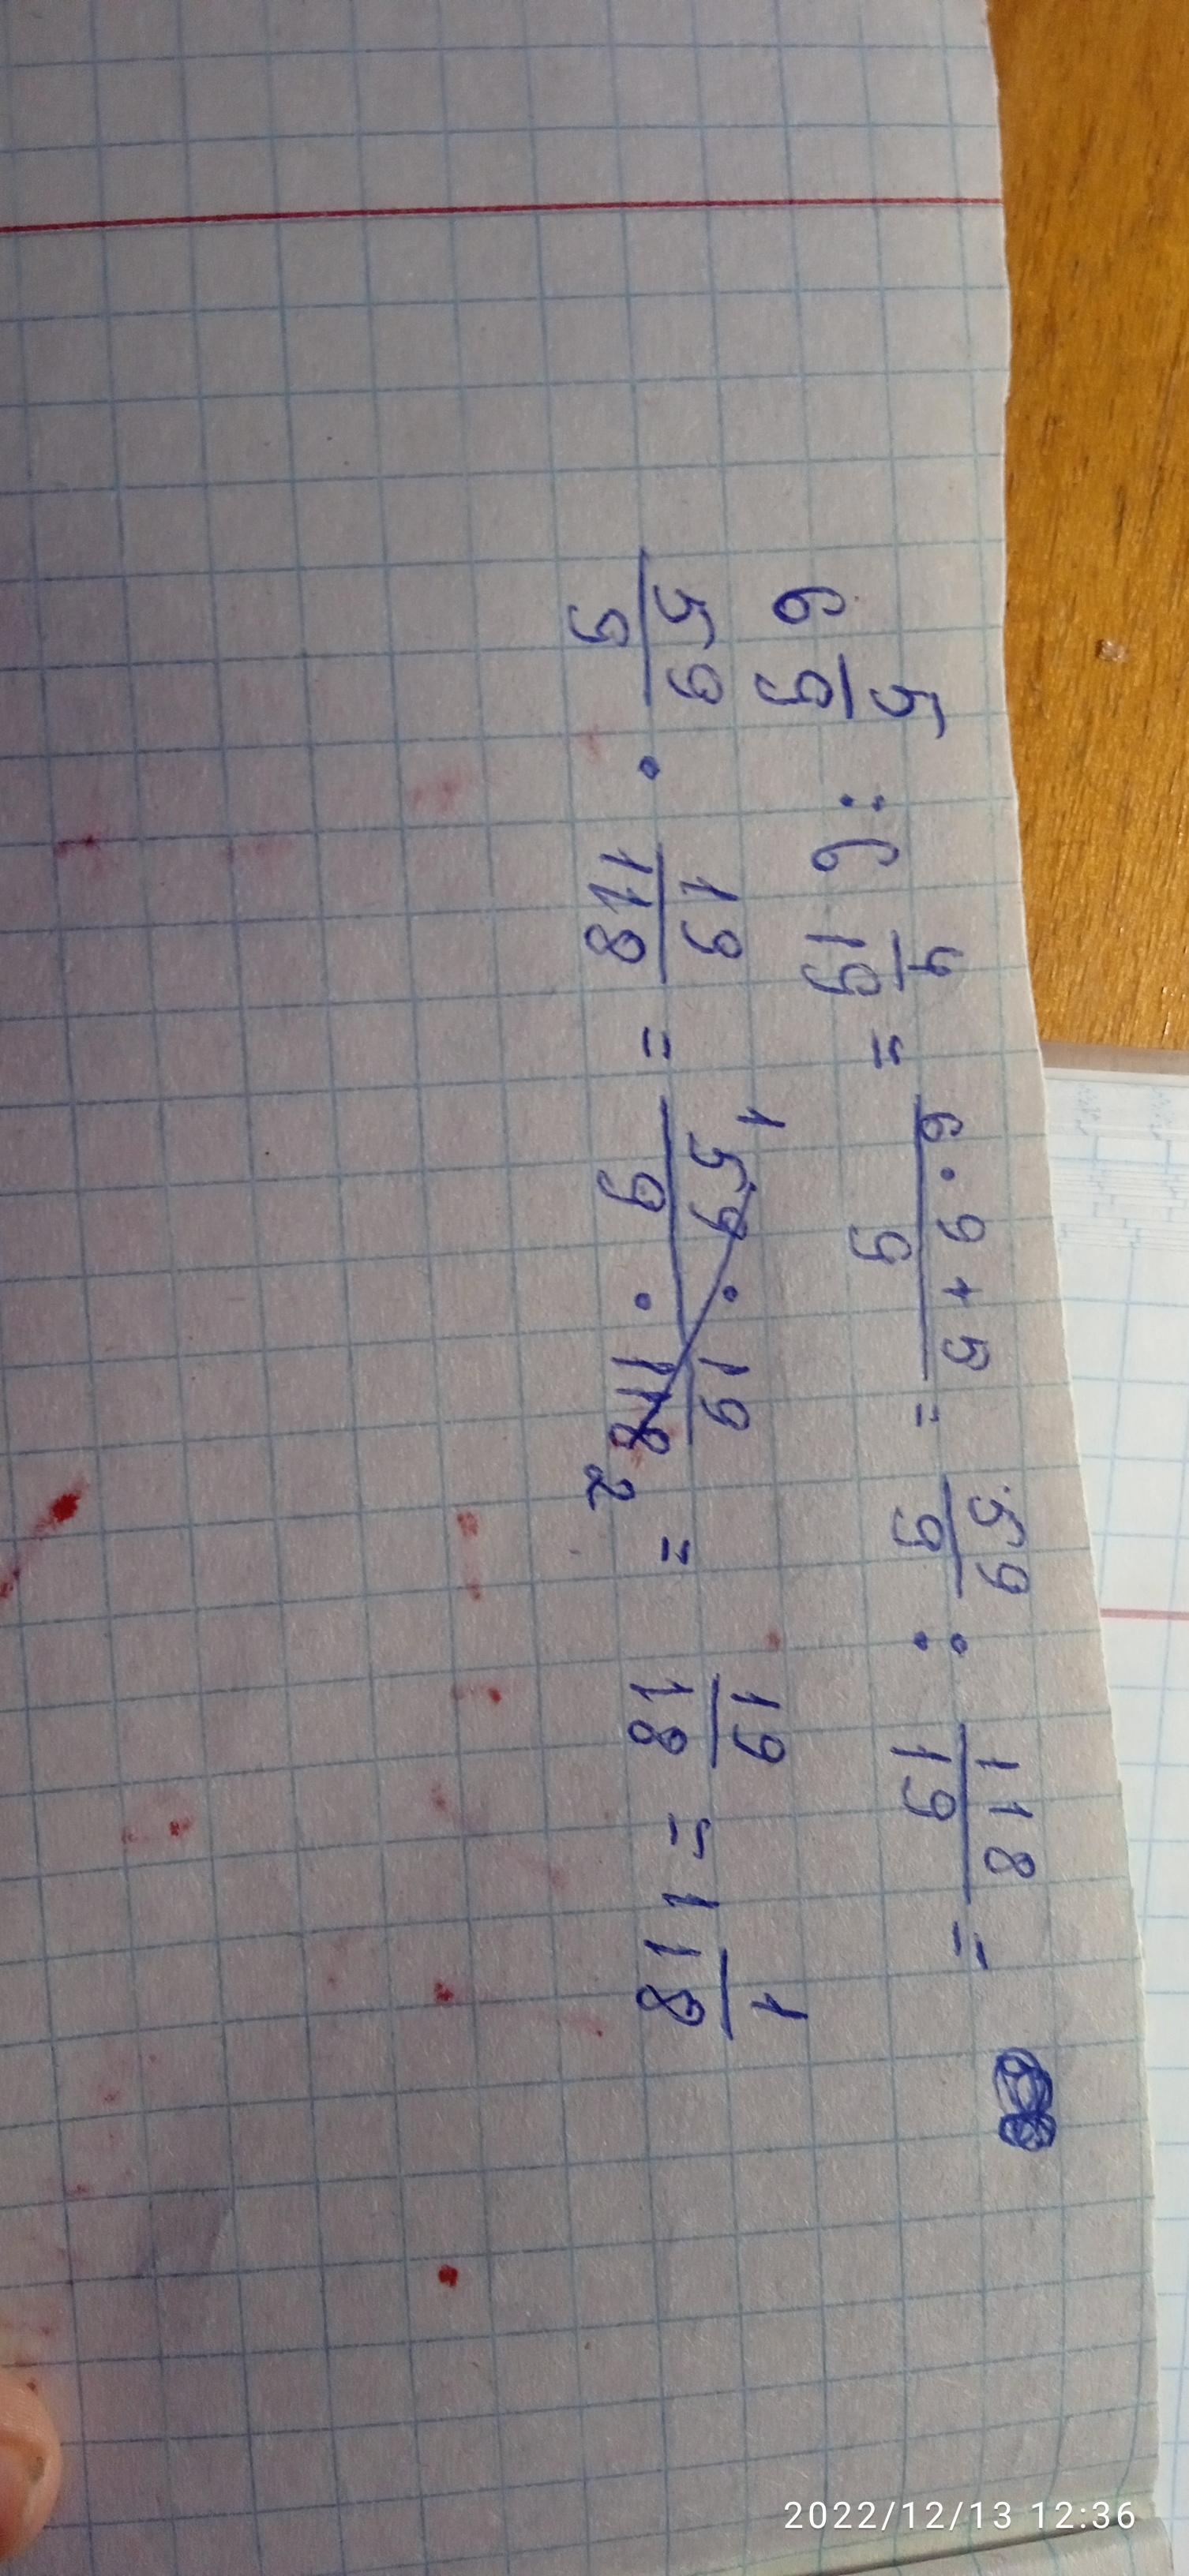 6 5/9 : 6 4/19 = 6 · 9 + 5/9 = 59/9 : 118/19 =
59/9 · 19/118 = 1 59 · 19/9 · 118 2 = 19/18 = 1 1/18
2022/12/13 12:36